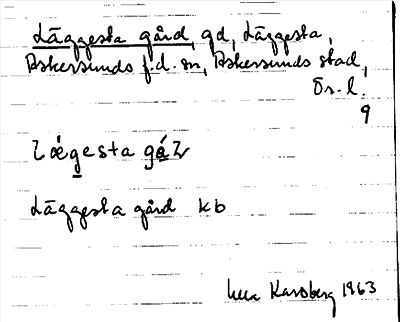 Läggesta gård, gd, Läggesta,
Askersunds f.d. sn, Askersunds stad,
Ör. l.
9
Läggesta gård kb
Karsberg 1963